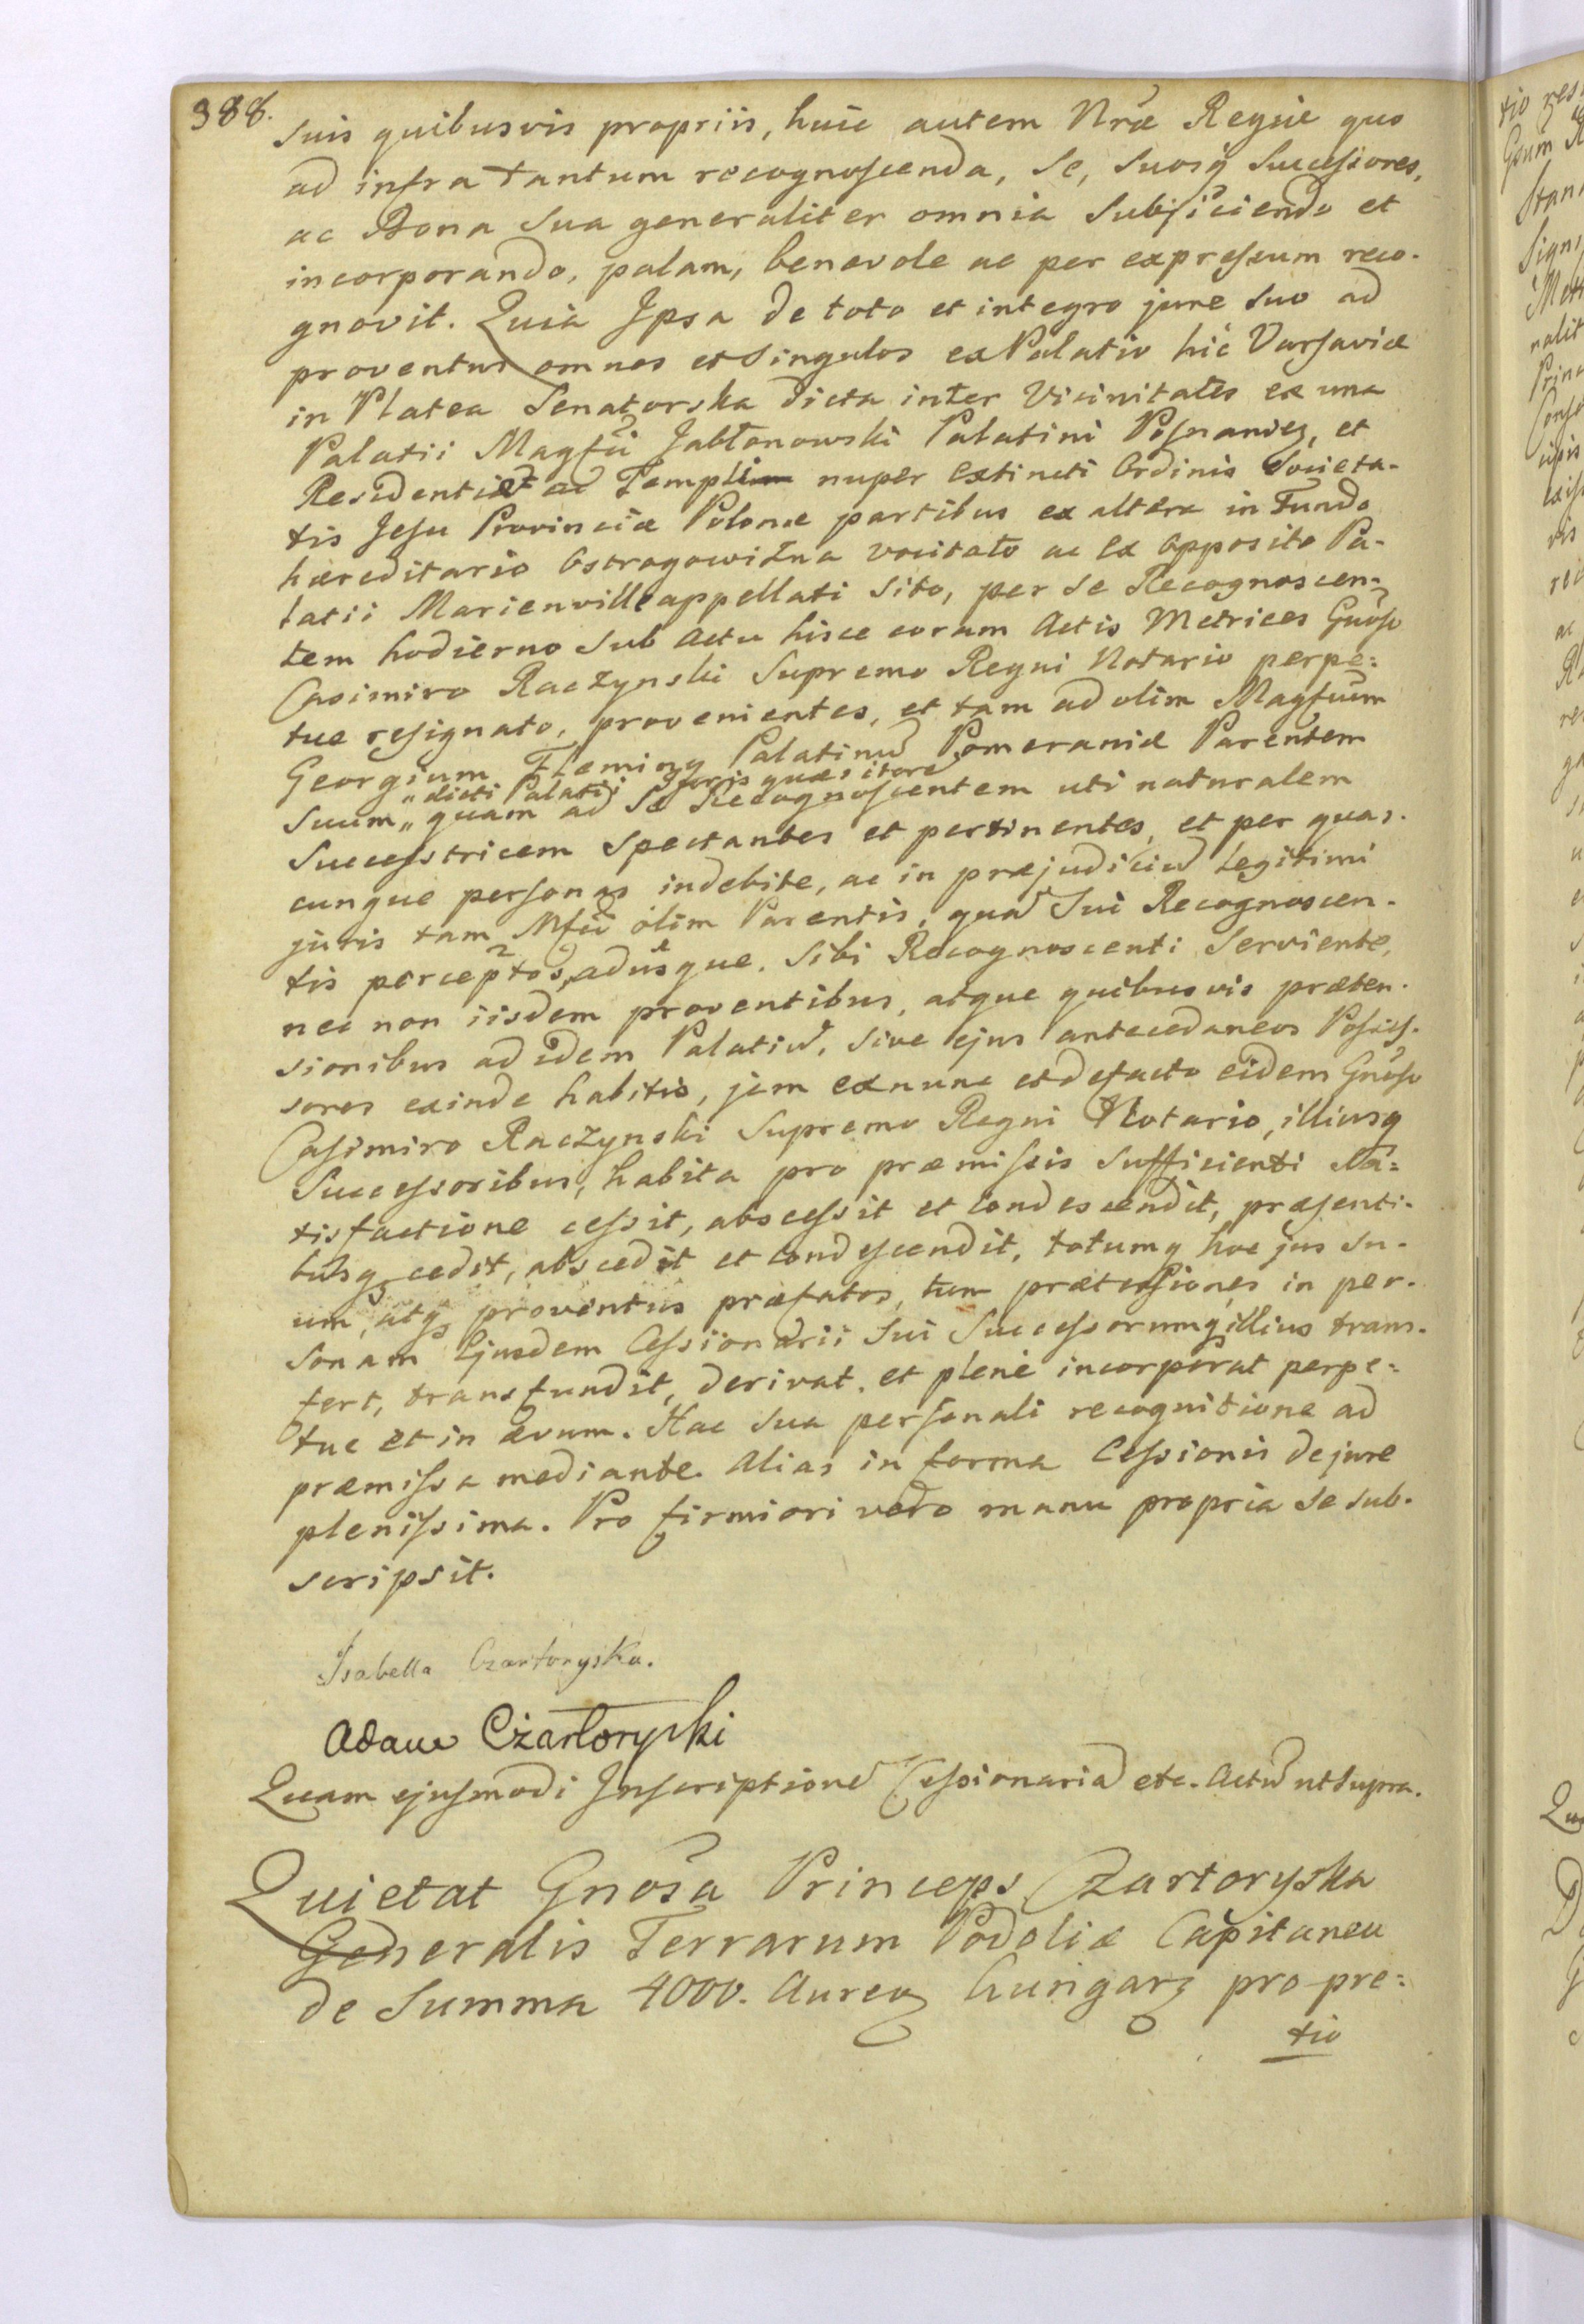 388.
Suis quibusvis propriis, huic autem Nræ Regiæ quo
ad infra tantum recognoscenda, Se, Suosq Successores,
ac Bona Sua generaliter omnia Subjiciendo et
incorporando, palam, benevole ac per expressum reco-
gnovit. Quia Ipsa de toto et integro jure Suo ad
proventus omnes et Singulos ex Palatio hic Varsaviæ
in Platea Senatorska dicta inter Vicinitates ex una
Palatii Magfci Jabłonowski Palatini Posnanieg, et
Residentiæ ad Templi nuper Extincti Ordinis Societa-
tis Jesu Provinciæ Polonæ partibus ex altera in Fundo
hæreditario Ostrogowizna vocitato ac ex opposito Pa-
latii Marienville appellati Sito, per Se Recognoscen-
tem hodierno Sub actu hisce coram Actis Metrices Gnoso
Casimiro Raczynski Supremo Regni Notario perpe=
tue resignato, provenientes, et tam ad olim Magfcum
Georgium Fleming Palatinu Pomeraniæ Parentem
„dicti Palatii Juris quæsitore
Suum „ quam ad Se Recognoscentem uti naturalem
Successtricem Spectantes et pertinentes, et per quas-
cunque personas indebite, ac in præjudiciu Legitimi
juris tam Mfci olim Parentis, qua Sui Recognoscen-
tis perceptos, adusque. Sibi Recognoscenti Serviente,
nec non iisdem proventibus, atque quibusvis præten-
sionibus ad idem Palatiu, Sive ejus antecedaneos Posses-
sores exinde habitis, jam ex nunc et defacto eidem Gnoso
Casimiro Raczynski Supremo Regni Notario, illiusq
Successoribus, habita pro præmissis Sufficienti Sa=
tisfactione cessit, abscessit et Condescendit, præsenti-
busq cedit, abscedit et condescendit, totumq hoc jus Su-
um, atq proventus præfatos, tum prætensiones in per-
sonam Ejusdem Cessionarii Sui Successorumq illius trans-
fert, transfundit, derivat, et plene incorporat perpe=
tue et in ævum. Hac Sua personali recognitione ad
præmissa mediante. Alias in forma Cessionis de jure
plenissima. Pro firmiori vero manu propria Se sub-
scripsit.
Isabella Czartoryska.
Adam Czartoryski
Quam ejusmodi Inscriptione Cessionaria etc. Actu ut Supra.
Quietat Gnosa Princeps Czartoryska
Generalis Terrarum Podoliæ Capitanea
de Summa 4000. Aureoꝝ hungarꝝ pro pre=
tio